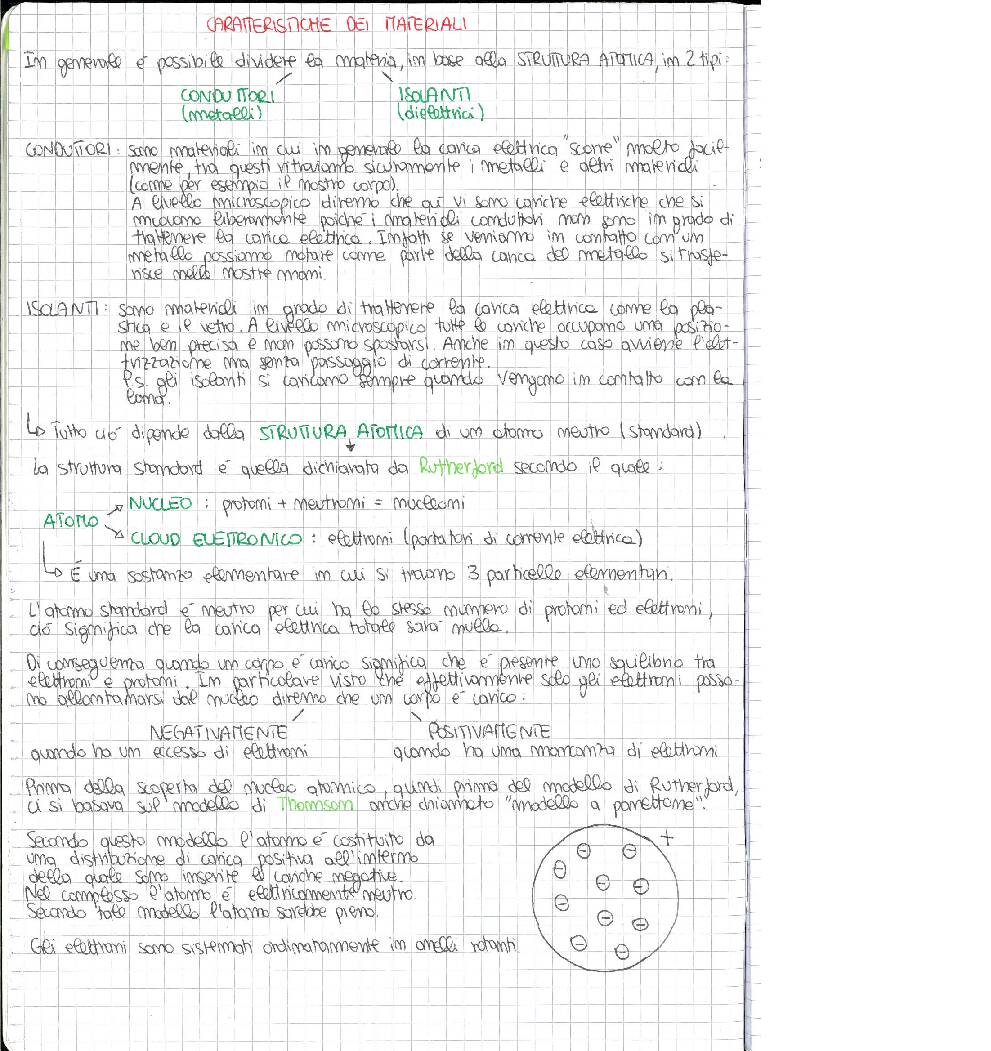 CARATTERISTICHE DEI MATERIALI
In generale è possibile dividere la materia, in base alla STRUTTURA ATOMICA, in 2 tipi:
CONDUTTORI ISOLANTI
(metalli) (dielettrici)
CONDUTTORI: sono materiali in cui in generale la carica elettrica "scorre" molto facil-
mente, tra questi ritroviamo sicuramente i metalli e altri materiali
(come per esempio il nostro corpo).
A livello microscopico diremo che qui vi sono cariche elettriche che si
muovono liberamente poiché i materiali conduttori non sono in grado di
trattenere la carica elettrica. Infatti se veniamo in contatto con un
metallo possiamo notare come parte della carica del metallo si trasfe-
risce nelle nostre mani.
ISOLANTI: sono materiali in grado di trattenere la carica elettrica come la pla-
stica e il vetro. A livello microscopico tutte le cariche occupano una posizio-
ne ben precisa e non possono spostarsi. Anche in questo caso avviene l'elet-
trizzazione ma senza passaggio di corrente.
P.s. gli isolanti si caricano sempre quando vengono in contatto con la
lana.
↳ Tutto ciò dipende dalla STRUTTURA ATOMICA di un atomo neutro (standard)
La struttura standard è quella dichiarata da Rutherford secondo il quale:
NUCLEO: protoni + neutroni = nucleoni
ATOMO
CLOUD ELETTRONICO: elettroni (portatori di corrente elettrica)
↳ È una sostanza elementare in cui si trovano 3 particelle elementari.
L'atomo standard è neutro per cui ha lo stesso numero di protoni ed elettroni,
ciò significa che la carica elettrica totale sarà nulla.
Di conseguenza quando un corpo è carico significa che è presente uno squilibrio tra
elettroni e protoni. In particolare visto che effettivamente solo gli elettroni posso-
no allontanarsi dal nucleo diremo che un corpo è carico:
NEGATIVAMENTE POSITIVAMENTE
quando ha un eccesso di elettroni quando ha una mancanza di elettroni
Prima della scoperta del nucleo atomico, quindi prima del modello di Rutherford,
ci si basava sul modello di Thomson anche chiamato "modello a panettone".
Secondo questo modello l'atomo è costituito da
una distribuzione di carica positiva all'interno
della quale sono inserite le cariche negative.
Nel complesso l'atomo è elettricamente neutro.
Secondo tale modello l'atomo sarebbe pieno.
Gli elettroni sono sistemati ordinatamente in anelli rotanti
+